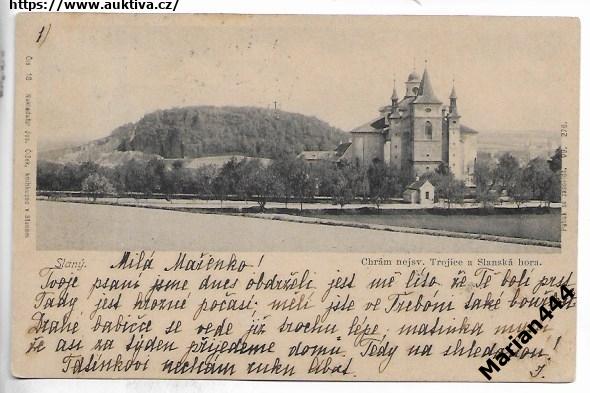 https://www.auktiva.cz/
1)
Čís. 18 Nakladatel Jos. Čížek, knihkupec v Slaném
Vb. 276.
Slaný.
Chrám nejsv. Trojice a Slanská hora.
Milá Mařenko!
Tvoje psaní jsme dnes obdrželi jest mě líto že Tě bolí prst
Tady jest hrozné počasí měli jste ve Třeboni také bouřku
Drahé babičce se vede již trochu lépe, maminka
že asi za týden přijedeme domů. Tedy na shledanou!
Tatínkovi nechám ruku líbat.
Marian444